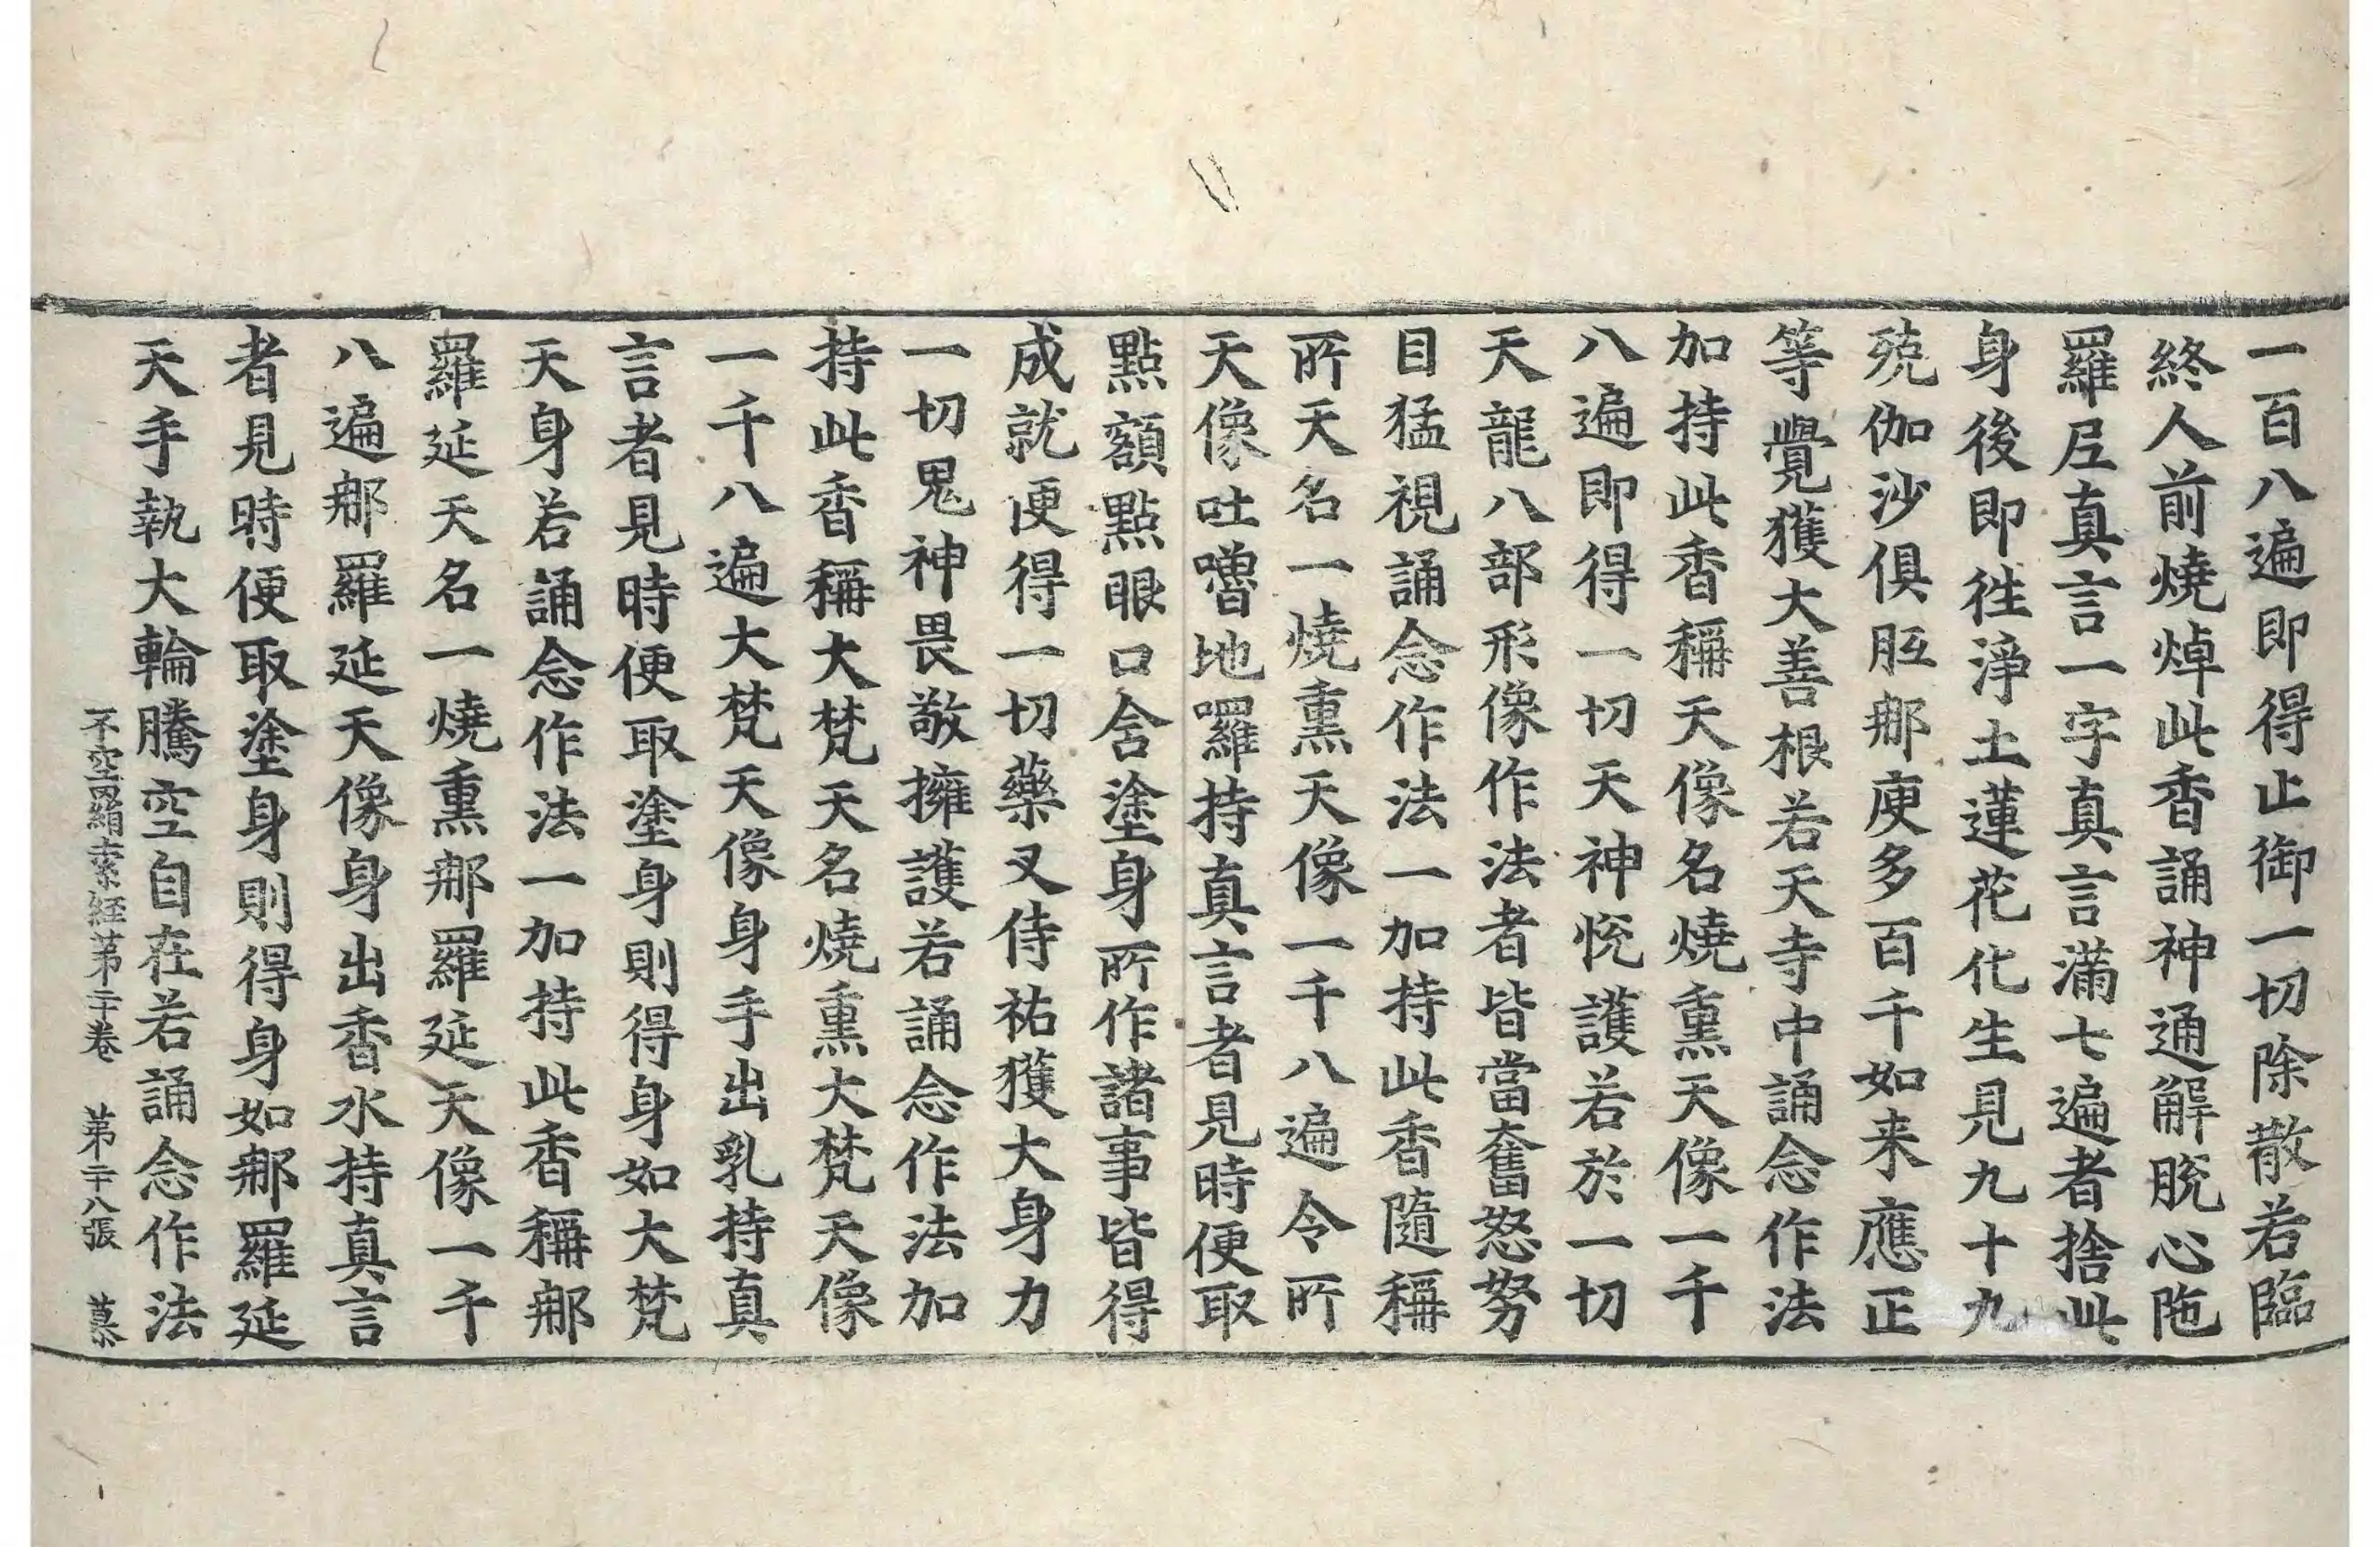 一百八遍即得止御一切除散若臨
終人前燒焯此香誦神通解脫心陁
羅𡰱真言一字真言滿七遍者捨此
身後即徃淨土蓮花化生見九十九
殑伽沙俱胝那庾多百千如来應正
等覺獲大善根若天寺中誦念作法
加持此香稱天像名燒熏天像一千
八遍即得一切天神恱護若於一切
天龍八部形像作法者皆當奮怒努
目猛視誦念作法一加持此香隨稱
所天名一燒熏天像一千八遍令所
天像吐嚕地囉持真言者見時便取
點額點眼口舍塗身所作諸事皆得
成就便得一切藥叉侍祐獲大身力
一切鬼神畏敬擁護若誦念作法加
持此香稱大梵天名燒熏大梵天像
一千八遍大梵天像身手出乳持真
言者見時便取塗身則得身如大梵
天身若誦念作法一加持此香稱那
羅延天名一燒熏那羅延天像一千
八遍那羅延天像身出香水持真言
者見時便取塗身則得身如那羅延
天手執大輪騰空自在若誦念作法
不空羂索経苐二十卷 苐二十八張 慕